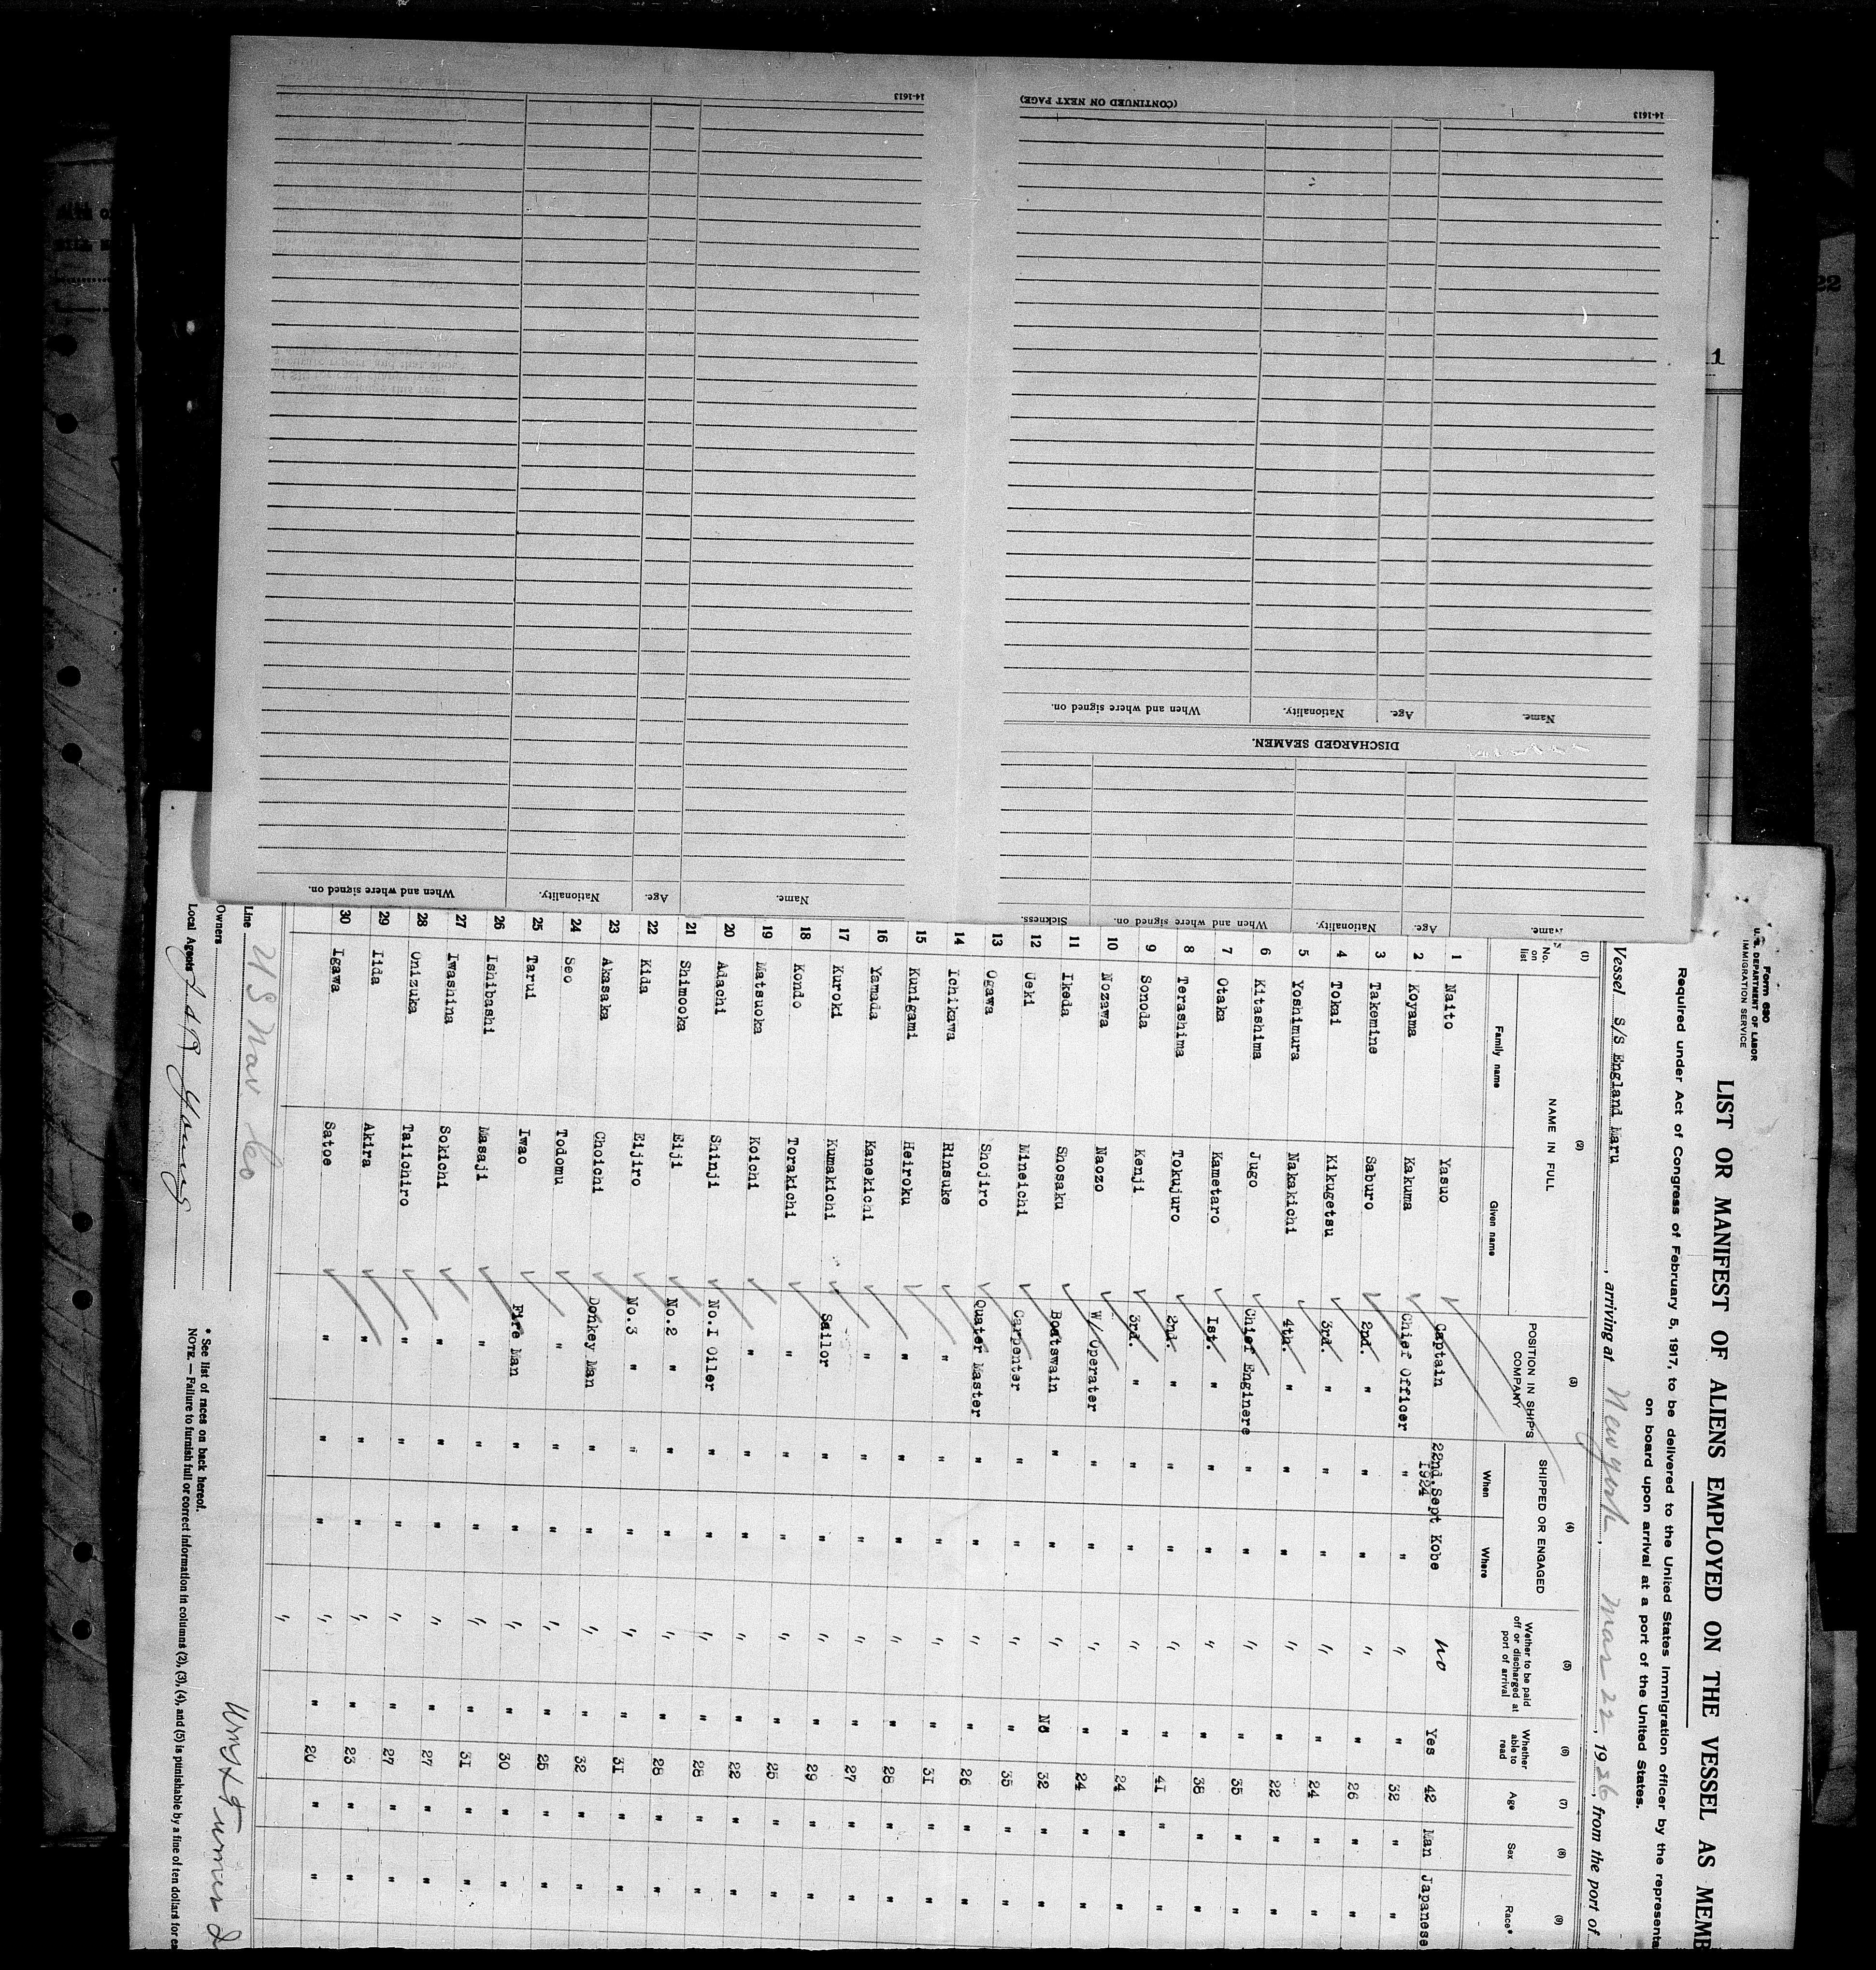 14-1613
(CONTINUED ON NEXT PAGE)
14-1613
Name. Age. Nationality. When and where signed on.
DISCHARGED SEAMEN.
Name. Age. Nationality. When and where signed on. Sickness.
Name. Age. Nationality. When and where signed on.
Form 680
U. S. DEPARTMENT OF LABOR
IMMIGRATION SERVICE
LIST OR MANIFEST OF ALIENS EMPLOYED ON THE VESSEL AS MEMB
Required under Act of Congress of February 5, 1917, to be delivered to the United States immigration officer by the representa
on board upon arrival at a port of the United States.
Vessel S/S England Maru, arriving at New York, Mar 22, 1926, from the port of
(1) (2) (3) (4) (5) (6) (7) (8) (9)
No. on list NAME IN FULL Family name Given name POSITION IN SHIP'S COMPANY SHIPPED OR ENGAGED When Where Wether to be paid off or discharged at port of arrival Whether able to read Age Sex Race*
1 Naito Yasuo Captain 22nd. Sept 1924 Kobe no Yes 42 Man Japanese
2 Koyama Kakuma Chief Officer " " " " 32 " "
3 Takemine Saburo 2nd. " " " " " 26 " "
4 Tokai Kikugetsu 3rd. " " " " " 24 " "
5 Yoshimura Nakakichi 4th. " " " " " 22 " "
6 Kitashima Jugo Chief Enginere " " " " 35 " "
7 Otaka Kametaro Ist. " " " " " 38 " "
8 Terashima Tokujuro 2nd. " " " " " 41 " "
9 Sonoda Kenji 3rd. " " " " " 24 " "
10 Nozawa Naozo W/Operater " " " " 24 " "
11 Ikeda Shosaku Boatswain " " " No 32 " "
12 Ueki Mineichi Carpenter " " " " 35 " "
13 Ogawa Shojiro Quater Master " " " " 26 " "
14 Ichikawa Rinsuke " " " " " 31 " "
15 Kunigami Heiroku " " " " " 28 " "
16 Yamada Kanekichi " " " " " 27 " "
17 Kuroki Kumakichi Sailor " " " " 29 " "
18 Kondo Torakichi " " " " " 25 " "
19 Matsuoka Koichi " " " " " 22 " "
20 Adachi Shinji No.I Oiler " " " " 28 " "
21 Shimooka Eiji No.2 " " " " " 28 " "
22 Kida Eijiro No.3 " " " " " 31 " "
23 Akasaka Choichi Donkey Man " " " " 32 " "
24 Seo Todomu " " " " " 25 " "
25 Tarui Iwao Fire Man " " " " 30 " "
26 Ishibashi Masaji " " " " " 31 " "
27 Iwashina Sokichi " " " " " 27 " "
28 Onizuka Taiichiro " " " " " 27 " "
29 Iida Akira " " " " " 23 " "
30 Igawa Satoe " " " " " 20 " "
Line U S Nav Co
Owners
Local Agents
* See list of races on back hereof.
NOTE.—Failure to furnish full or correct information in columns (2), (3), (4), and (5) is punishable by a fine of ten dollars for ea